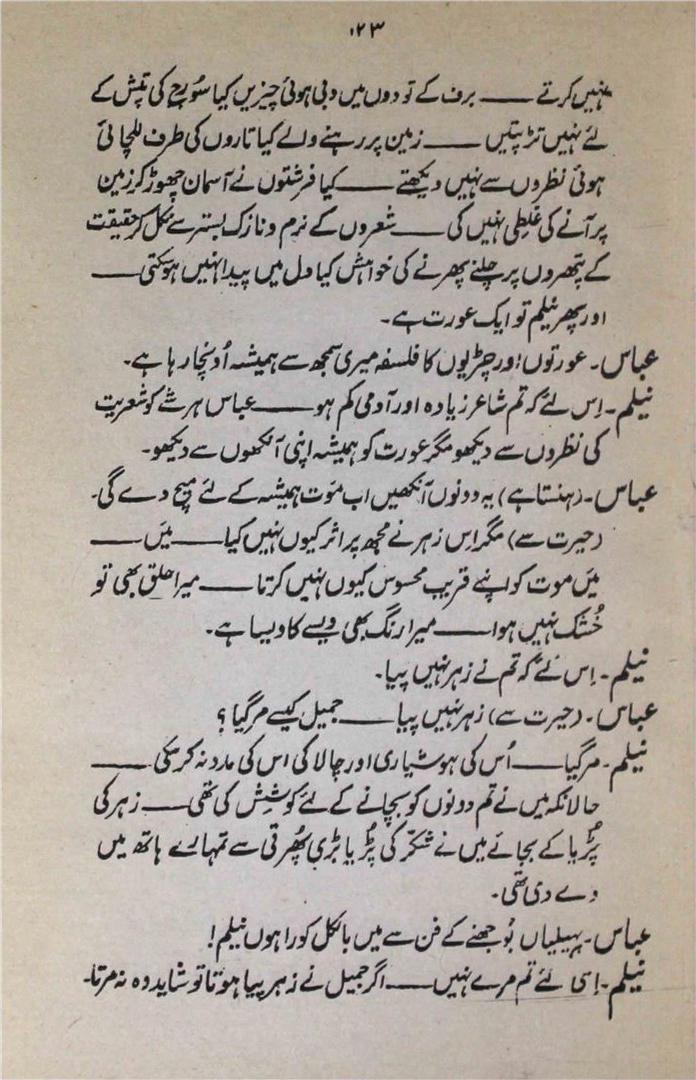 ۱۲۳
نہیں کرتے —— برف کے تودوں میں دبی ہوئی چیزیں کیا سُورج کی تپش کے
لئے نہیں تڑپتیں —— زمین پر رہنے والے کیا تاروں کی طرف للچائی
ہوئی نظروں سے نہیں دیکھتے —— کیا فرشتوں نے آسمان چھوڑ کر زمین
پر آنے کی غلطی نہیں کی —— شعروں کے نرم و نازک بستر سے نکل کر حقیقت
کے پتھروں پر چلنے پھرنے کی خواہش کیا دل میں پیدا نہیں ہو سکتی ——
اور پھر نیلم تو ایک عورت ہے۔
عباس۔ عورتوں اور چڑیوں کا فلسفہ میری سمجھ سے ہمیشہ اُونچا رہا ہے۔
نیلم۔ اِس لئے کہ تم شاعر زیادہ اور آدمی کم ہو —— عباس ہر شے کو شعریت
کی نظروں سے دیکھو مگر عورت کو ہمیشہ اپنی آنکھوں سے دیکھو۔
عباس۔ (ہنستا ہے) یہ دونوں آنکھیں اب موت ہمیشہ کے لئے میچ دے گی۔
(حیرت سے) مگر اِس زہر نے مجھ پر اثر کیوں نہیں کیا —— میں ——
میں موت کو اپنے قریب محسوس کیوں نہیں کرتا —— میرا حلق بھی تو
خُشک نہیں ہوا —— میرا رنگ بھی ویسے کا ویسا ہے۔
نیلم۔ اِس لئے کہ تم نے زہر نہیں پیا۔
عباس۔ (حیرت سے) زہر نہیں پیا —— جمیل کیسے مر گیا؟
نیلم۔ مر گیا —— اُس کی ہوشیاری اور چالاکی اس کی مدد نہ کر سکی ——
حالانکہ میں نے تم دونوں کو بچانے کے لئے کوشش کی تھی —— زہر کی
پُڑیا کے بجائے میں نے شکر کی پُڑیا بڑی پھُرتی سے تمہارے ہاتھ میں
دے دی تھی۔
عباس۔ پہیلیاں بُوجھنے کے فن سے میں بالکل کورا ہوں نیلم!
نیلم۔ اِسی لئے تم مرے نہیں —— اگر جمیل نے زہر پیا ہوتا تو شاید وہ نہ مرتا۔